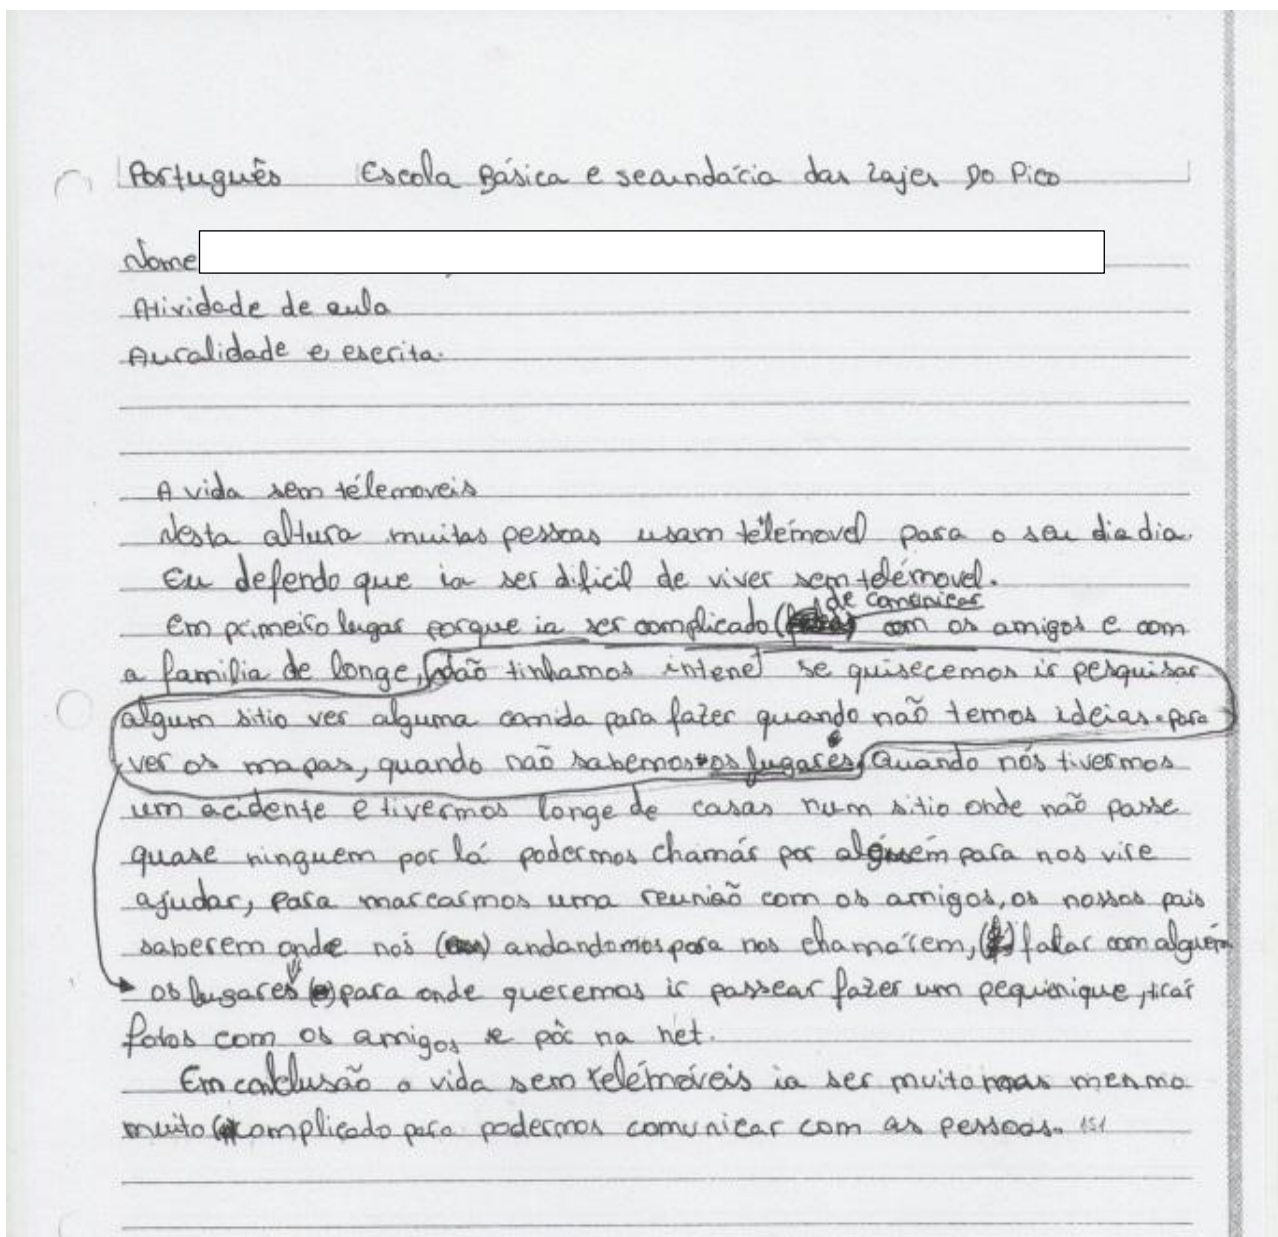 Português Escola Básica e secundária das Lajes Do Pico
Nome
Atividade de aula
Auralidade e escrita.
A vida sem télemoveis
Nesta altura muitas pessoas usam télemovel para o seu dia dia.
Eu defendo que ia ser dificil de viver sem telémovel.
de comonicar
Em primeiro lugar porque ia ser complicado ( ) com os amigos e com
a familia de longe, não tinhamos intenet se quisecemos ir pesquisar
algum sitio ver alguma comida para fazer quando não temos ideias. para
ver os mapas, quando não sabemos os lugares, Quando nós tivermos
um acidente e tivermos longe de casas num sitio onde não passe
quase ninguem por lá podermos chamár por alguém para nos vire
ajudar, para marcarmos uma reunião com os amigos, os nossos pais
saberem onde nós ( ) andandomos para nos chamárem, ( ) falar com alguém
os lugares ( ) para onde queremos ir passear fazer um pequinique, tirar
fotos com os amigos e pôr na net.
Em conclusão a vida sem telémóveis ia ser muito mas mesmo
muito complicado para podermos comunicar com as pessoas. 151